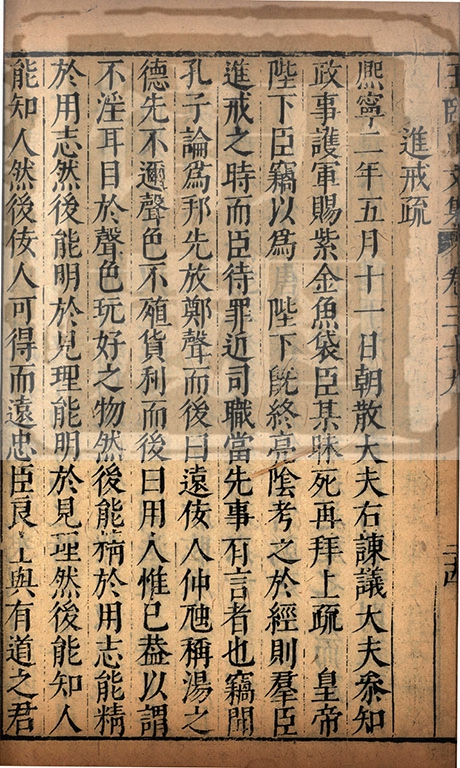 王臨川文集 卷三十九
進戒疏
熈寧二年五月十一日朝散大夫右諫議大夫叅知
政事護軍賜紫金魚袋臣某昧死再拜上疏 皇帝
陛下臣竊以爲 陛下旣終亮陰考之於經則羣臣
進戒之時而臣待罪近司職當先事有言者也竊聞
孔子論爲邦先放鄭聲而後曰遠佞人仲虺稱湯之
德先不邇聲色不殖貨利而後曰用人惟已葢以謂
不淫耳目於聲色玩好之物然後能精於用志能精
於用志然後能明於見理能明於見理然後能知人
能知人然後佞人可得而遠忠臣良士與有道之君